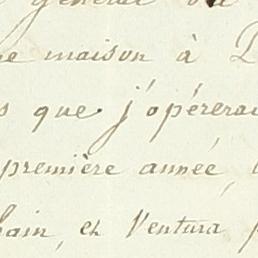 général
e maison à
s que j'opérerai
première année,
hain, et Ventura